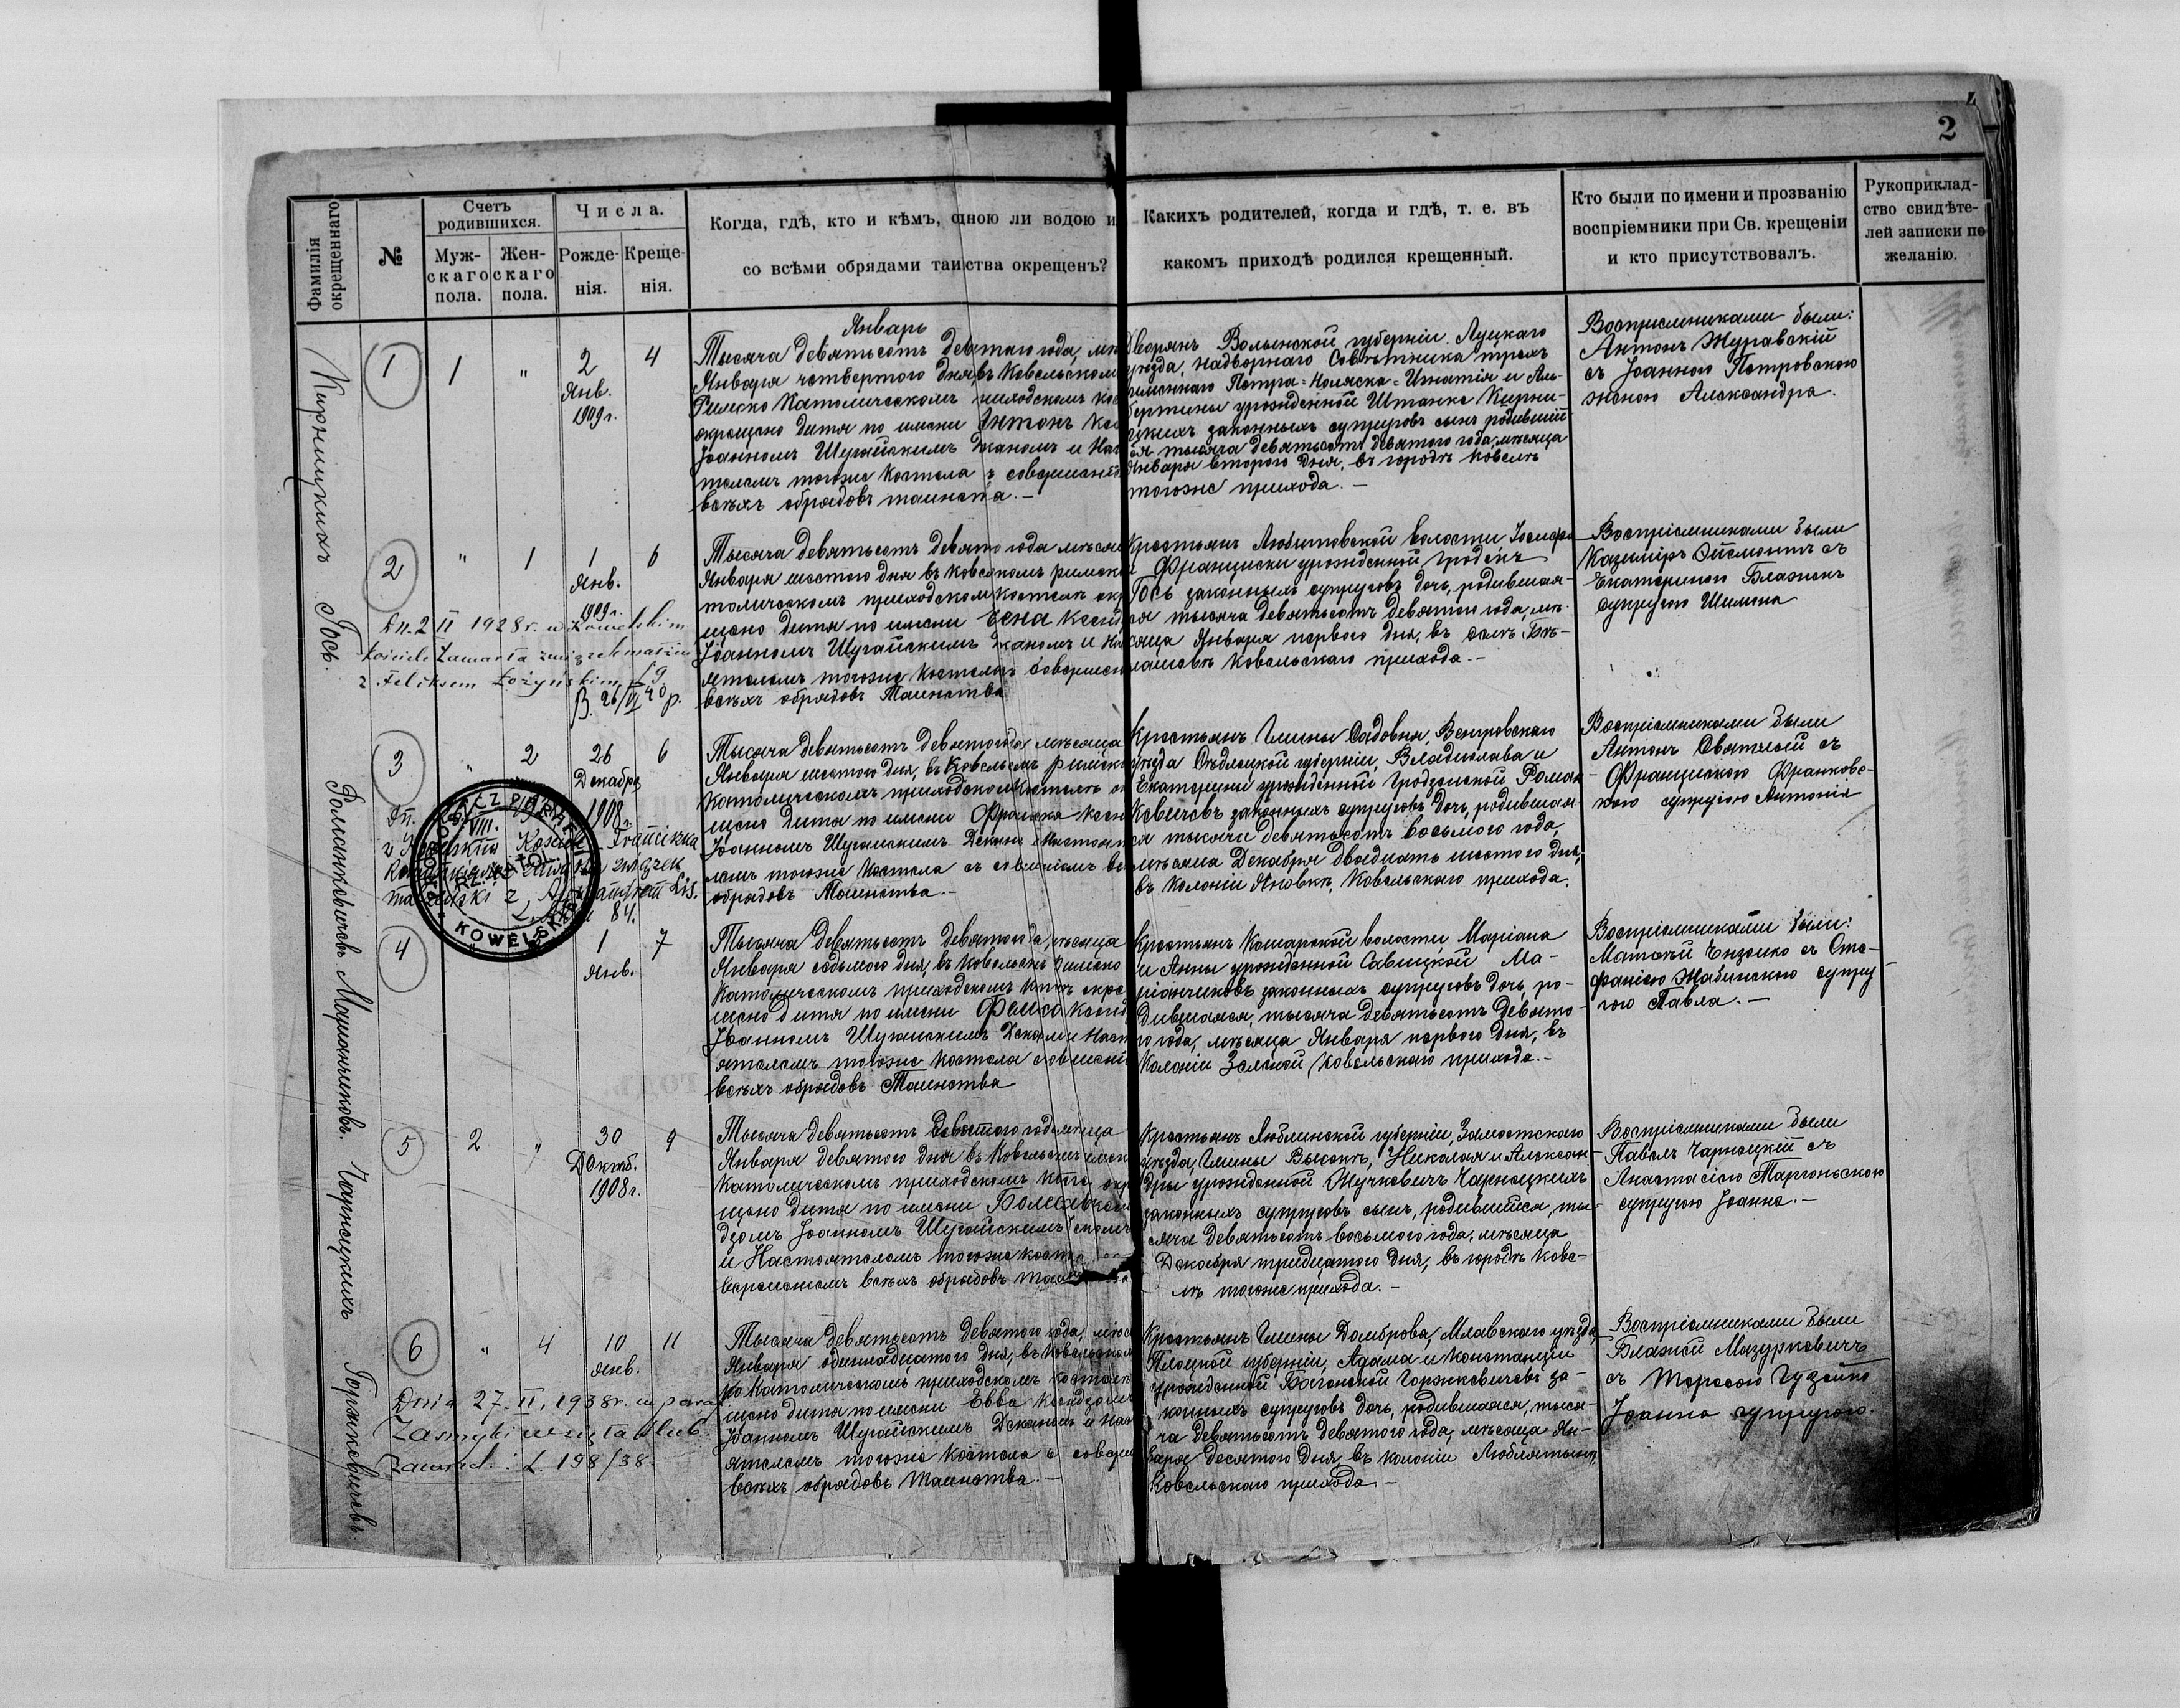 2
Фамилія окрещеннаго
№
Счетъ родившихся.
Муж-
скаго
пола.
Жен-
скаго
пола.
Числа.
Рожде-
нія.
Креще-
нія.
Когда, гдѣ, кто и кѣмъ, одною ли водою и
со всѣми обрядами таинства окрещенъ?
Какихъ родителей, когда и гдѣ, т. е. въ
какомъ приходѣ родился крещенный.
Кто были по имени и прозванію
воспріемники при Св. крещеніи
и кто присутствовалъ.
Рукоприклад-
ство свидѣте-
лей записки по
желанію.
Кирницкихъ
1
1
"
2
Янв.
1909 г.
4
Январь
Тысяча девятьсотъ девятого года, мѣ
Января четвертого дня въ Ковельском
Римско Католическомъ приходскомъ кос
окрещено дитя по имени Антонъ Ксе
Іоанномъ Шугайскимъ Деканомъ и Нас
телемъ тогоже костела с совершені
всѣхъ обрядовъ таинства. —
Дворянъ Волынской губерніи Луцкаго
уѣзда, Надворнаго Совѣтника трехъ
именнаго Петра-Ноляска-Игнатія и Аль-
бертины урожденной Штанке Кирни-
цкихъ законныхъ супруговъ сынъ родившій
ся тысяча девятьсотъ девятого года, мѣсяца
Января второго дня, въ городѣ Ковелѣ
тогоже прихода. —
Воспріемниками были:
Антонъ Журавскій
съ Іоанною Петровскою
женою Александра.
Гось.
2
"
1
1
Янв.
1909 г.
6
Dn. 2 II 1928 r. w Kowelskim
kościele zawarła związek małżeń
z Feliksem Łożyńskim
В. 26/VI 40 р.
Тысяча девятьсотъ девято года мѣсяц
Января шестого дня въ Ковельскомъ римско
толическомъ приходскомъ костелѣ окр
щено дитя по имени Гена Ксенд
Іоанномъ Шугайскимъ Деканомъ и На
ятелемъ тогоже костела с совершен
всѣхъ обрядовъ Таинства
Крестьянъ Любитовской волости Іосифа
и Франциски урожденной Гродекъ
Гось законныхъ супруговъ дочь, родившая-
ся тысяча девятьсотъ девятого года, мѣ-
сяца Января перваго дня, въ селѣ Бѣ-
лашовѣ Ковельскаго прихода. —
Воспріемниками были
Казиміръ Ойсмонтъ съ
Екатериною Блажекъ
супругою Шимона
Романкевичовъ
3
"
2
26
Декабря
1908 г.
6
Dn.
VIII.
Kościele Franciszka
związek
małżeński z
84.
PROBOSZCZ PARAFII
KOWELSKIEJ
Тысяча девятьсотъ девятого года мѣсяца
Января шестого дня, въ Ковельскомъ римско
Католическомъ приходскомъ костелѣ о
щено дитя по имени Франциска Ксен
Іоанномъ Шугайскимъ Декана и Настоят
лемъ тогоже костела съ совершеніемъ в
обрядовъ Таинства. —
Крестьянъ Гмины Садовня, Венгровскаго
уѣзда Сѣдлецкой губерніи, Владислава и
Екатерины урожденной Гродзенской Роман
Кевичовъ законныхъ супруговъ дочь, родившая
ся тысяча девятьсотъ восьмого года,
мѣсяца Декабря двадцать шестого дня,
въ Колоніи Яновкѣ, Ковельскаго прихода.
Воспріемниками были
Антонъ Святлый съ
Францишкою Франковс-
кою супругою Антонія
Маріанчиковъ.
4
"
3
1
Янв.
7
Тысяча девятьсотъ девятого года, мѣсяца
Января седьмого дня, въ Ковельскомъ Римско
Католическомъ приходскомъ кост. окре
щено дитя по имени Фелиса Ксенд
Іоанномъ Шугайскимъ Деканомъ и Наст
ятелемъ тогоже костела с совершені
всѣхъ обрядовъ Таинства
Крестьянъ Кошарской волости, Маріана
и Анны урожденной Савицкой Ма-
ріанчиковъ законныхъ супруговъ дочь, ро-
дившаяся, тысяча девятьсотъ девято-
го года, мѣсяца Января перваго дня, въ
Колоніи Зеленой, Ковельскаго прихода. —
Воспріемниками были:
Матвѣй съ Сте-
фаніею Жабинскою супру-
гою Павла. —
Чарнецкихъ
5
2
"
30
Декаб.
1908 г.
9
Тысяча девятьсотъ девятого года мѣсяца
Января девятого дня въ Ковельскомъ
Католическомъ приходскомъ кост. окр
щено дитя по имени Болеславъ Ксен
дзомъ Іоанномъ Шугайскимъ Деканомъ
и Настоятелемъ тогоже косте
вершеніемъ всѣхъ обрядовъ Таинства
Крестьянъ Люблинской губерніи, Замостскаго
уѣзда, Гмины Высокѣ, Николая и Алексан-
дры урожденной Жучкевичъ Чарнецкихъ
законныхъ супруговъ сынъ, родившійся, ты-
сяча девятьсотъ восьмого года, мѣсяца
Декабря тридцатого дня, въ городѣ Кове-
лѣ тогоже прихода. —
Воспріемниками были
Павелъ Чарнецкій съ
Анастасіею Таргоньскою
супругою Іоанна. —
Горжкевичовъ
6
"
4
10
Янв.
11
Dnia 27. II. 1938 r. w paraf
Zasmyki wzięła ślub.
Zawiad. L. 198/38.
Тысяча девятьсотъ девятого года, мѣся
Января одинадцатого дня, въ Ковельском
ко Католическомъ приходскомъ костелѣ
щено дитя по имени Евва Ксендзомъ
Іоанномъ Шугайскимъ Деканомъ и Нас
ятелемъ тогоже костела с соверш
всѣхъ обрядовъ Таинства. —
Крестьянъ Гмины Домброва, Млавскаго уѣзда,
Плоцкой губерніи, Адама и Констанціи
урожденной Багенской Горжкевичовъ за-
конныхъ супруговъ дочь, родившаяся, тыся-
ча девятьсотъ девятого года, мѣсяца Ян-
варя десятого дня, въ колоніи Люблятынѣ,
Ковельскаго прихода. —
Воспріемниками были
Блажей Мазуркевичъ
съ Тересою Гузейко
Іоанна супругою.